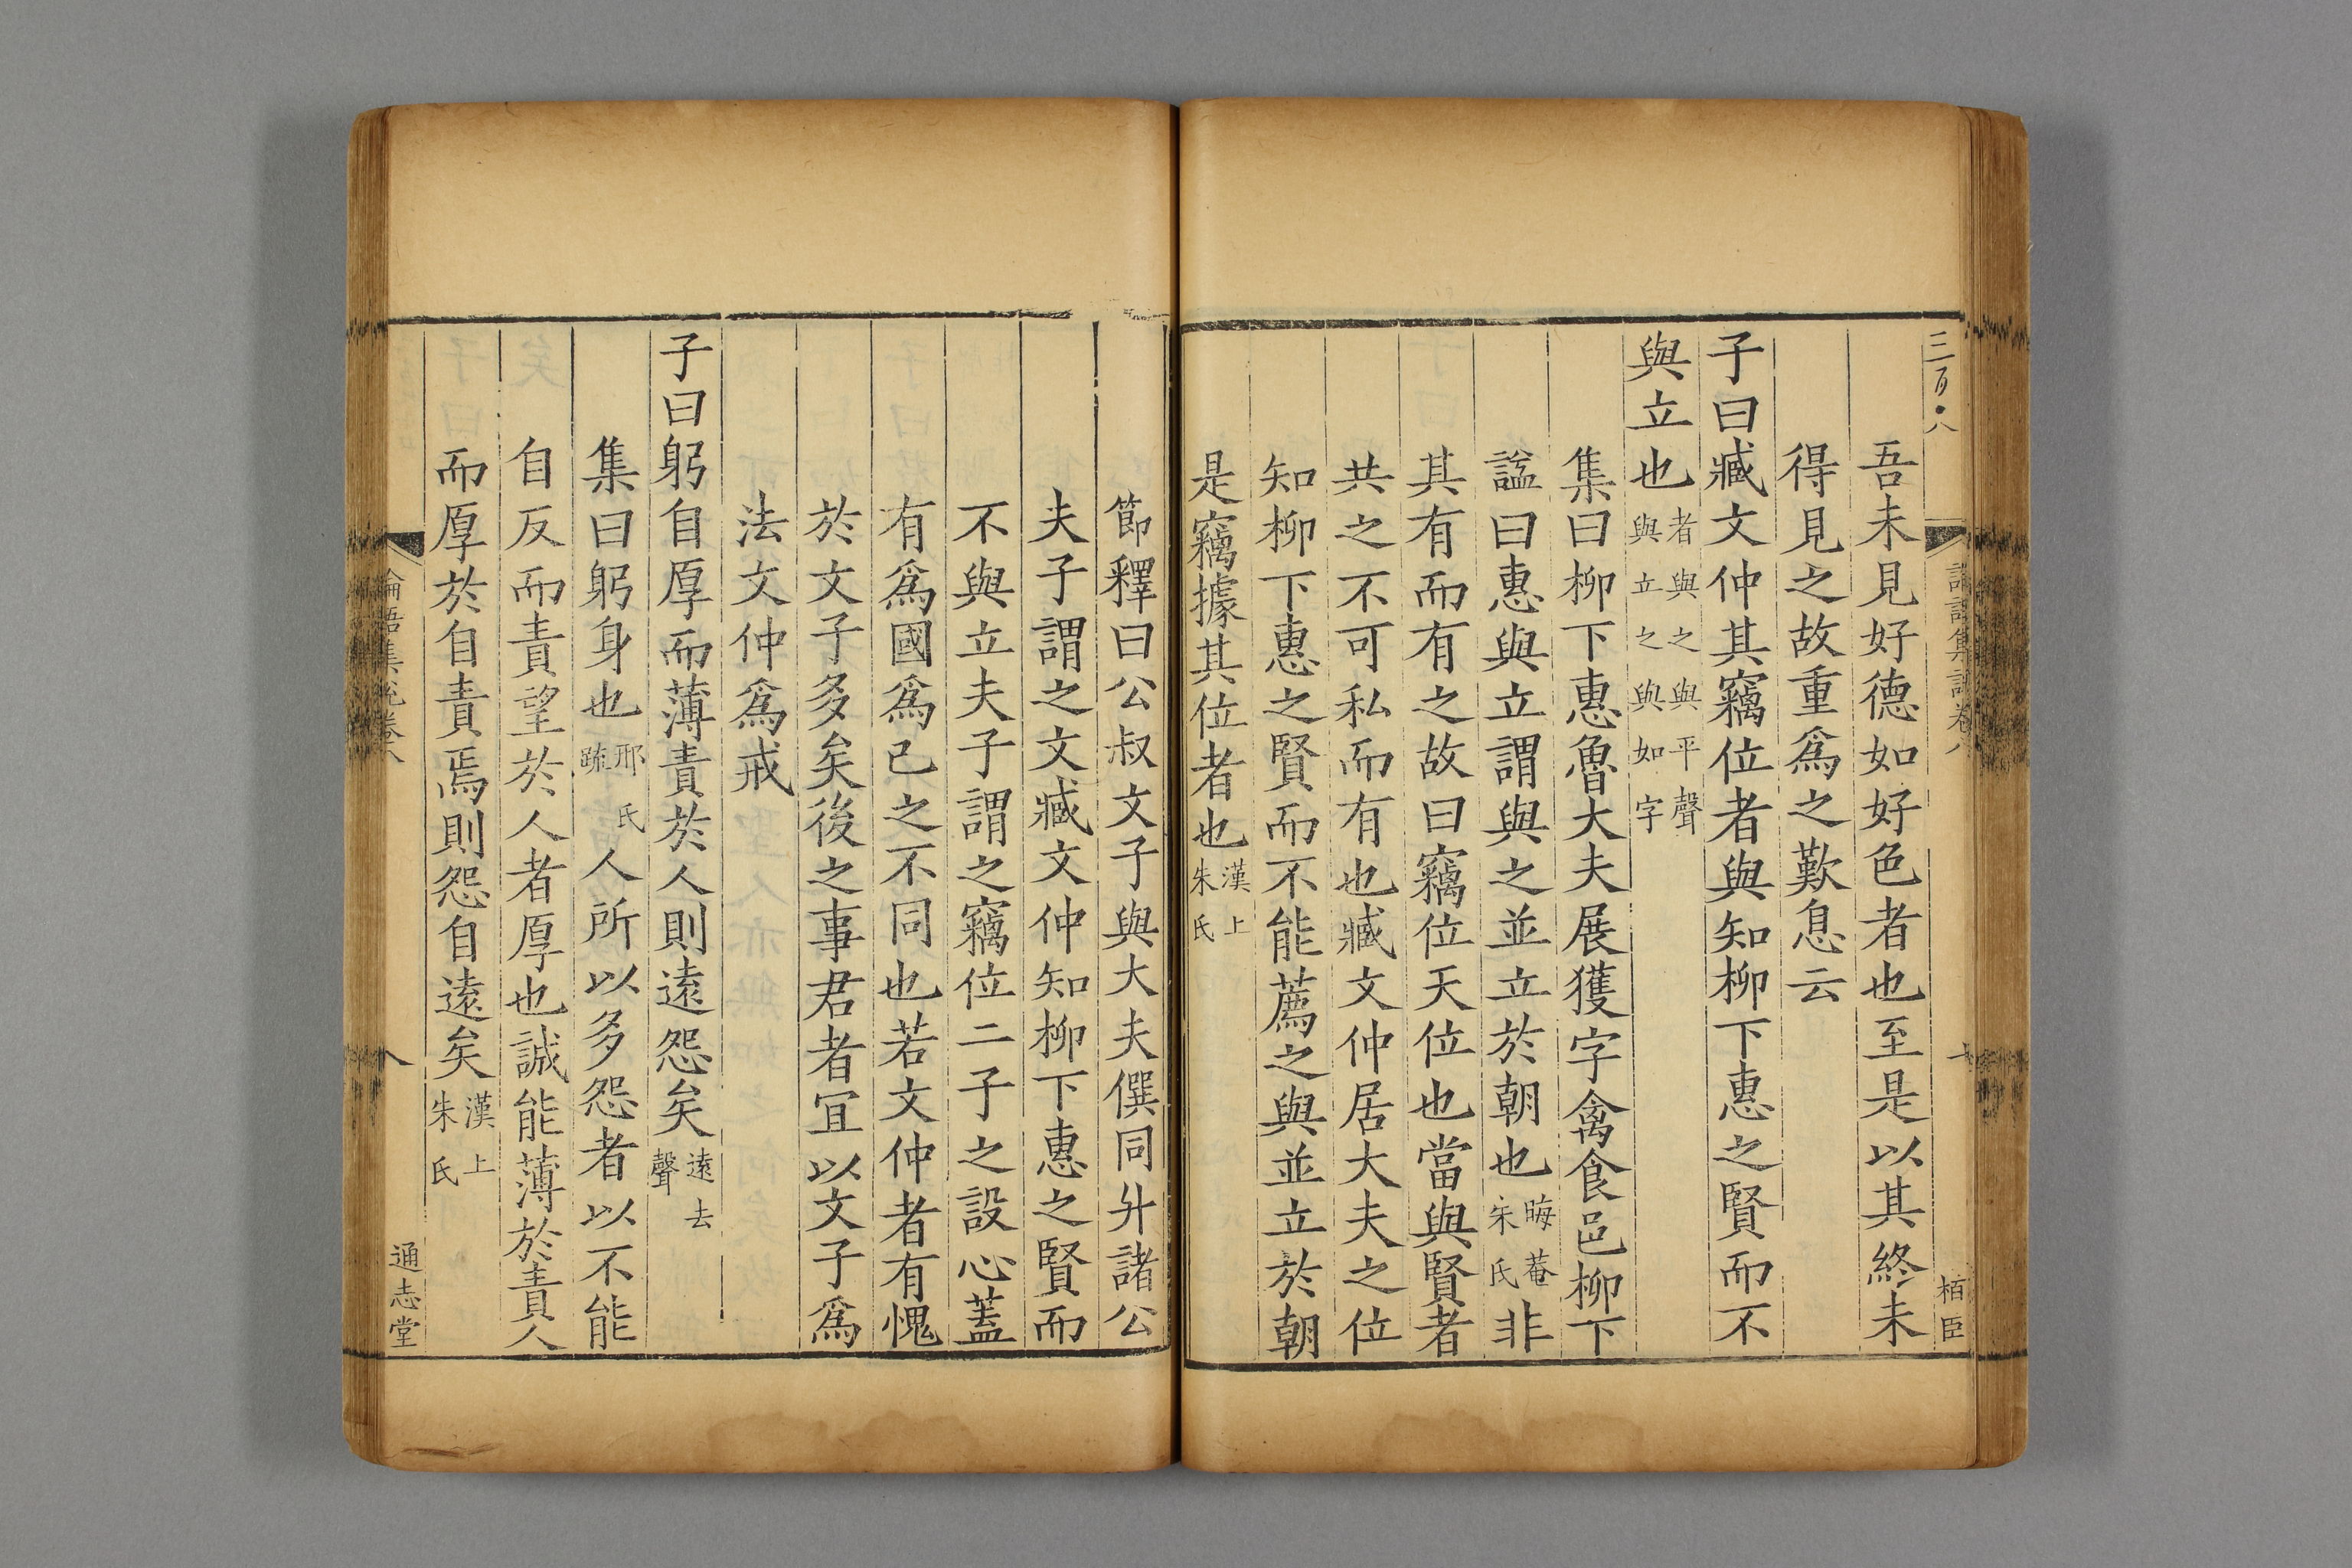 三百八
論語集說卷八
栢臣
吾未見好德如好色者也至是以其終未
得見之故重爲之歎息云
子曰臧文仲其竊位者與知柳下惠之賢而不
與立也者與之與平聲與立之與如字
集曰柳下惠魯大夫展獲字禽食邑柳下
諡曰惠與立謂與之並立於朝也晦菴朱氏非
其有而有之故曰竊位天位也當與賢者
共之不可私而有也臧文仲居大夫之位
知柳下惠之賢而不能薦之與並立於朝
是竊據其位者也漢上朱氏
節釋曰公叔文子與大夫僎同升諸公
夫子謂之文臧文仲知柳下惠之賢而
不與立夫子謂之竊位二子之設心蓋
有爲國爲己之不同也若文仲者有愧
於文子多矣後之事君者宜以文子爲
法文仲爲戒
子曰躬自厚而薄責於人則遠怨矣遠去聲
集曰躬身也邢氏疏人所以多怨者以不能
自反而責望於人者厚也誠能薄於責人
而厚於自責焉則怨自遠矣漢上朱氏
論語集說卷八
八
通志堂